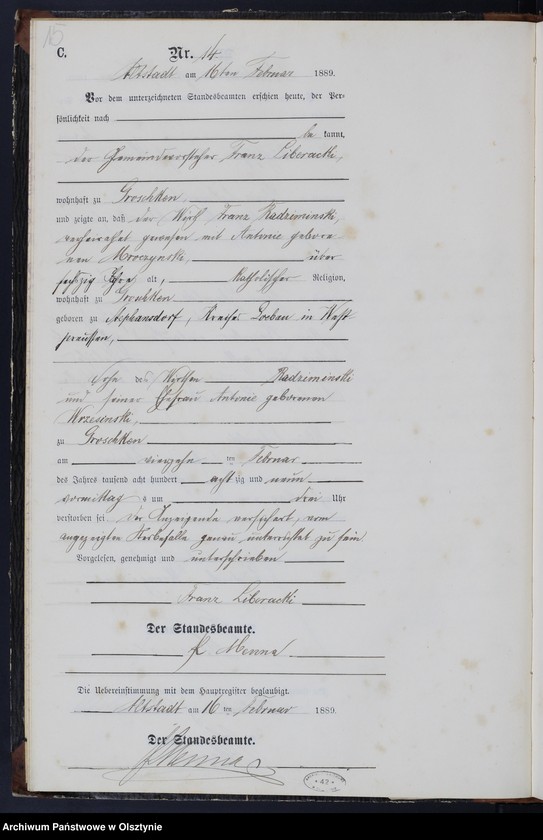 15
C.
Nr. 14
Altstadt am 16ten Februar 1889.
Vor dem unterzeichneten Standesbeamten erschien heute, der Per-
sönlichkeit nach
be kannt,
der Gemeindevorsteher Franz Liberacki,
wohnhaft zu Groschken
und zeigte an, daß der Wirth Franz Radziminski,
verheirathet gewesen mit Antonie gebore-
nen Mroczynski, über
sechzig Jahre alt, katholischer Religion,
wohnhaft zu Groschken
geboren zu Stephansdorf, Kreises Loebau in West
preussen,
Sohn des Wirthen Radziminski
und seiner Ehefrau Antonie geborenen
Wrzesinski,
zu Groschken
am vierzehn ten Februar
des Jahres tausend acht hundert acht zig und neun
vormittag s um drei Uhr
verstorben sei. Der Anzeigende versichert, vom
angezeigten Sterbefalle genau unterrichtet zu sein
Vorgelesen, genehmigt und unterschrieben
Franz Liberacki
Der Standesbeamte.
Menna
Die Uebereinstimmung mit dem Hauptregister beglaubigt.
Altstadt am 16 ten Februar 1889.
Der Standesbeamte.
Menna
42
Archiwum Państwowe w Olsztynie